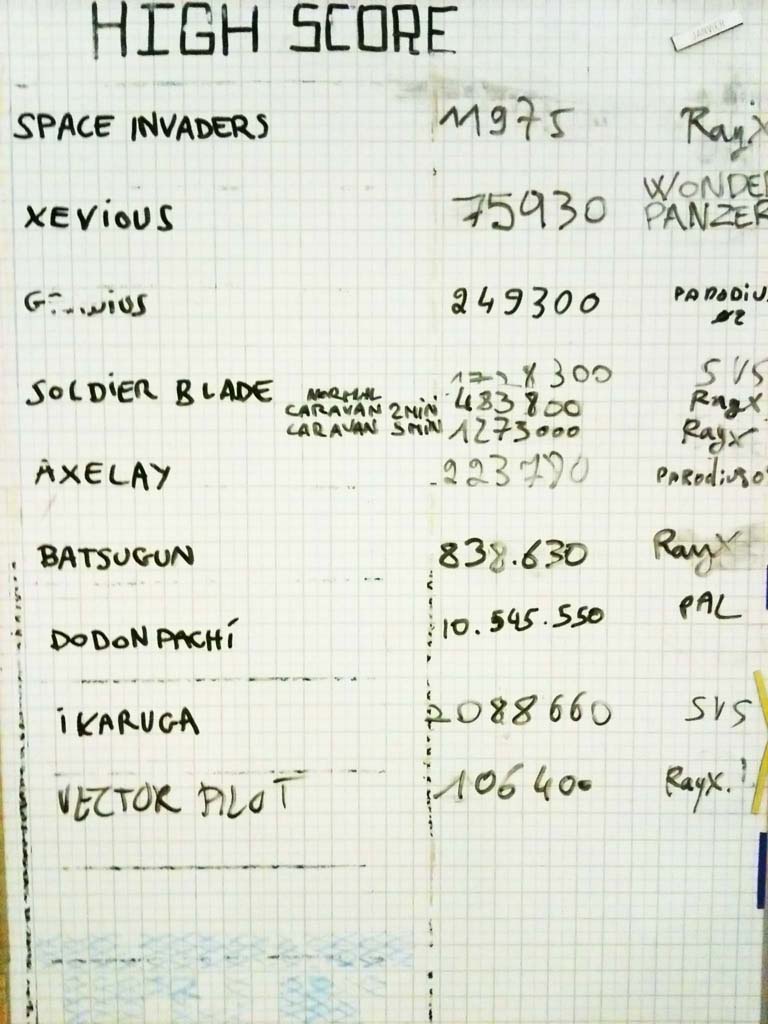 HIGH SCORE
JANVIER
SPACE INVADERS 11975 RayX
XEViOUS 75930 WONDER PANZER
249300 PARODIUS
SOLDiER BLADE 300 SVS
NORMAL
CARAVAN 2MiN 483800 RayX
CARAVAN 5MiN 1273000 RayX
AXELAY 223790 PARODiUS
BATSUGUN 838.630 RayX
DODONPACHi 10.545.550 PAL
iKARUGA 2088660 SVS
VECTOR PiLOT 106400 RayX.!